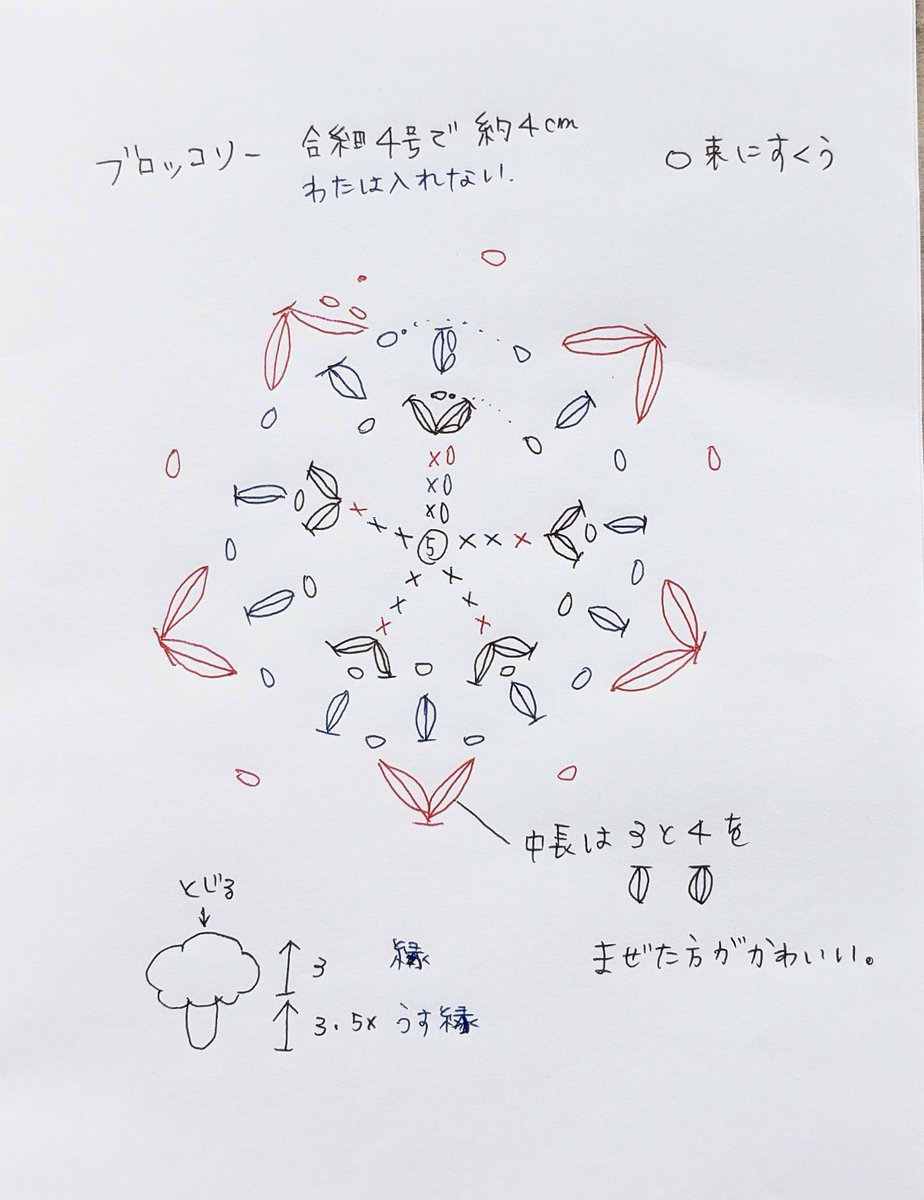 ブロッコリー
合細4号で 約4cm
わたは入れない.
○束にすくう
5
中長は 3と4を
まぜた方がかわいい。
とじる
3 縁
3.5x うす縁